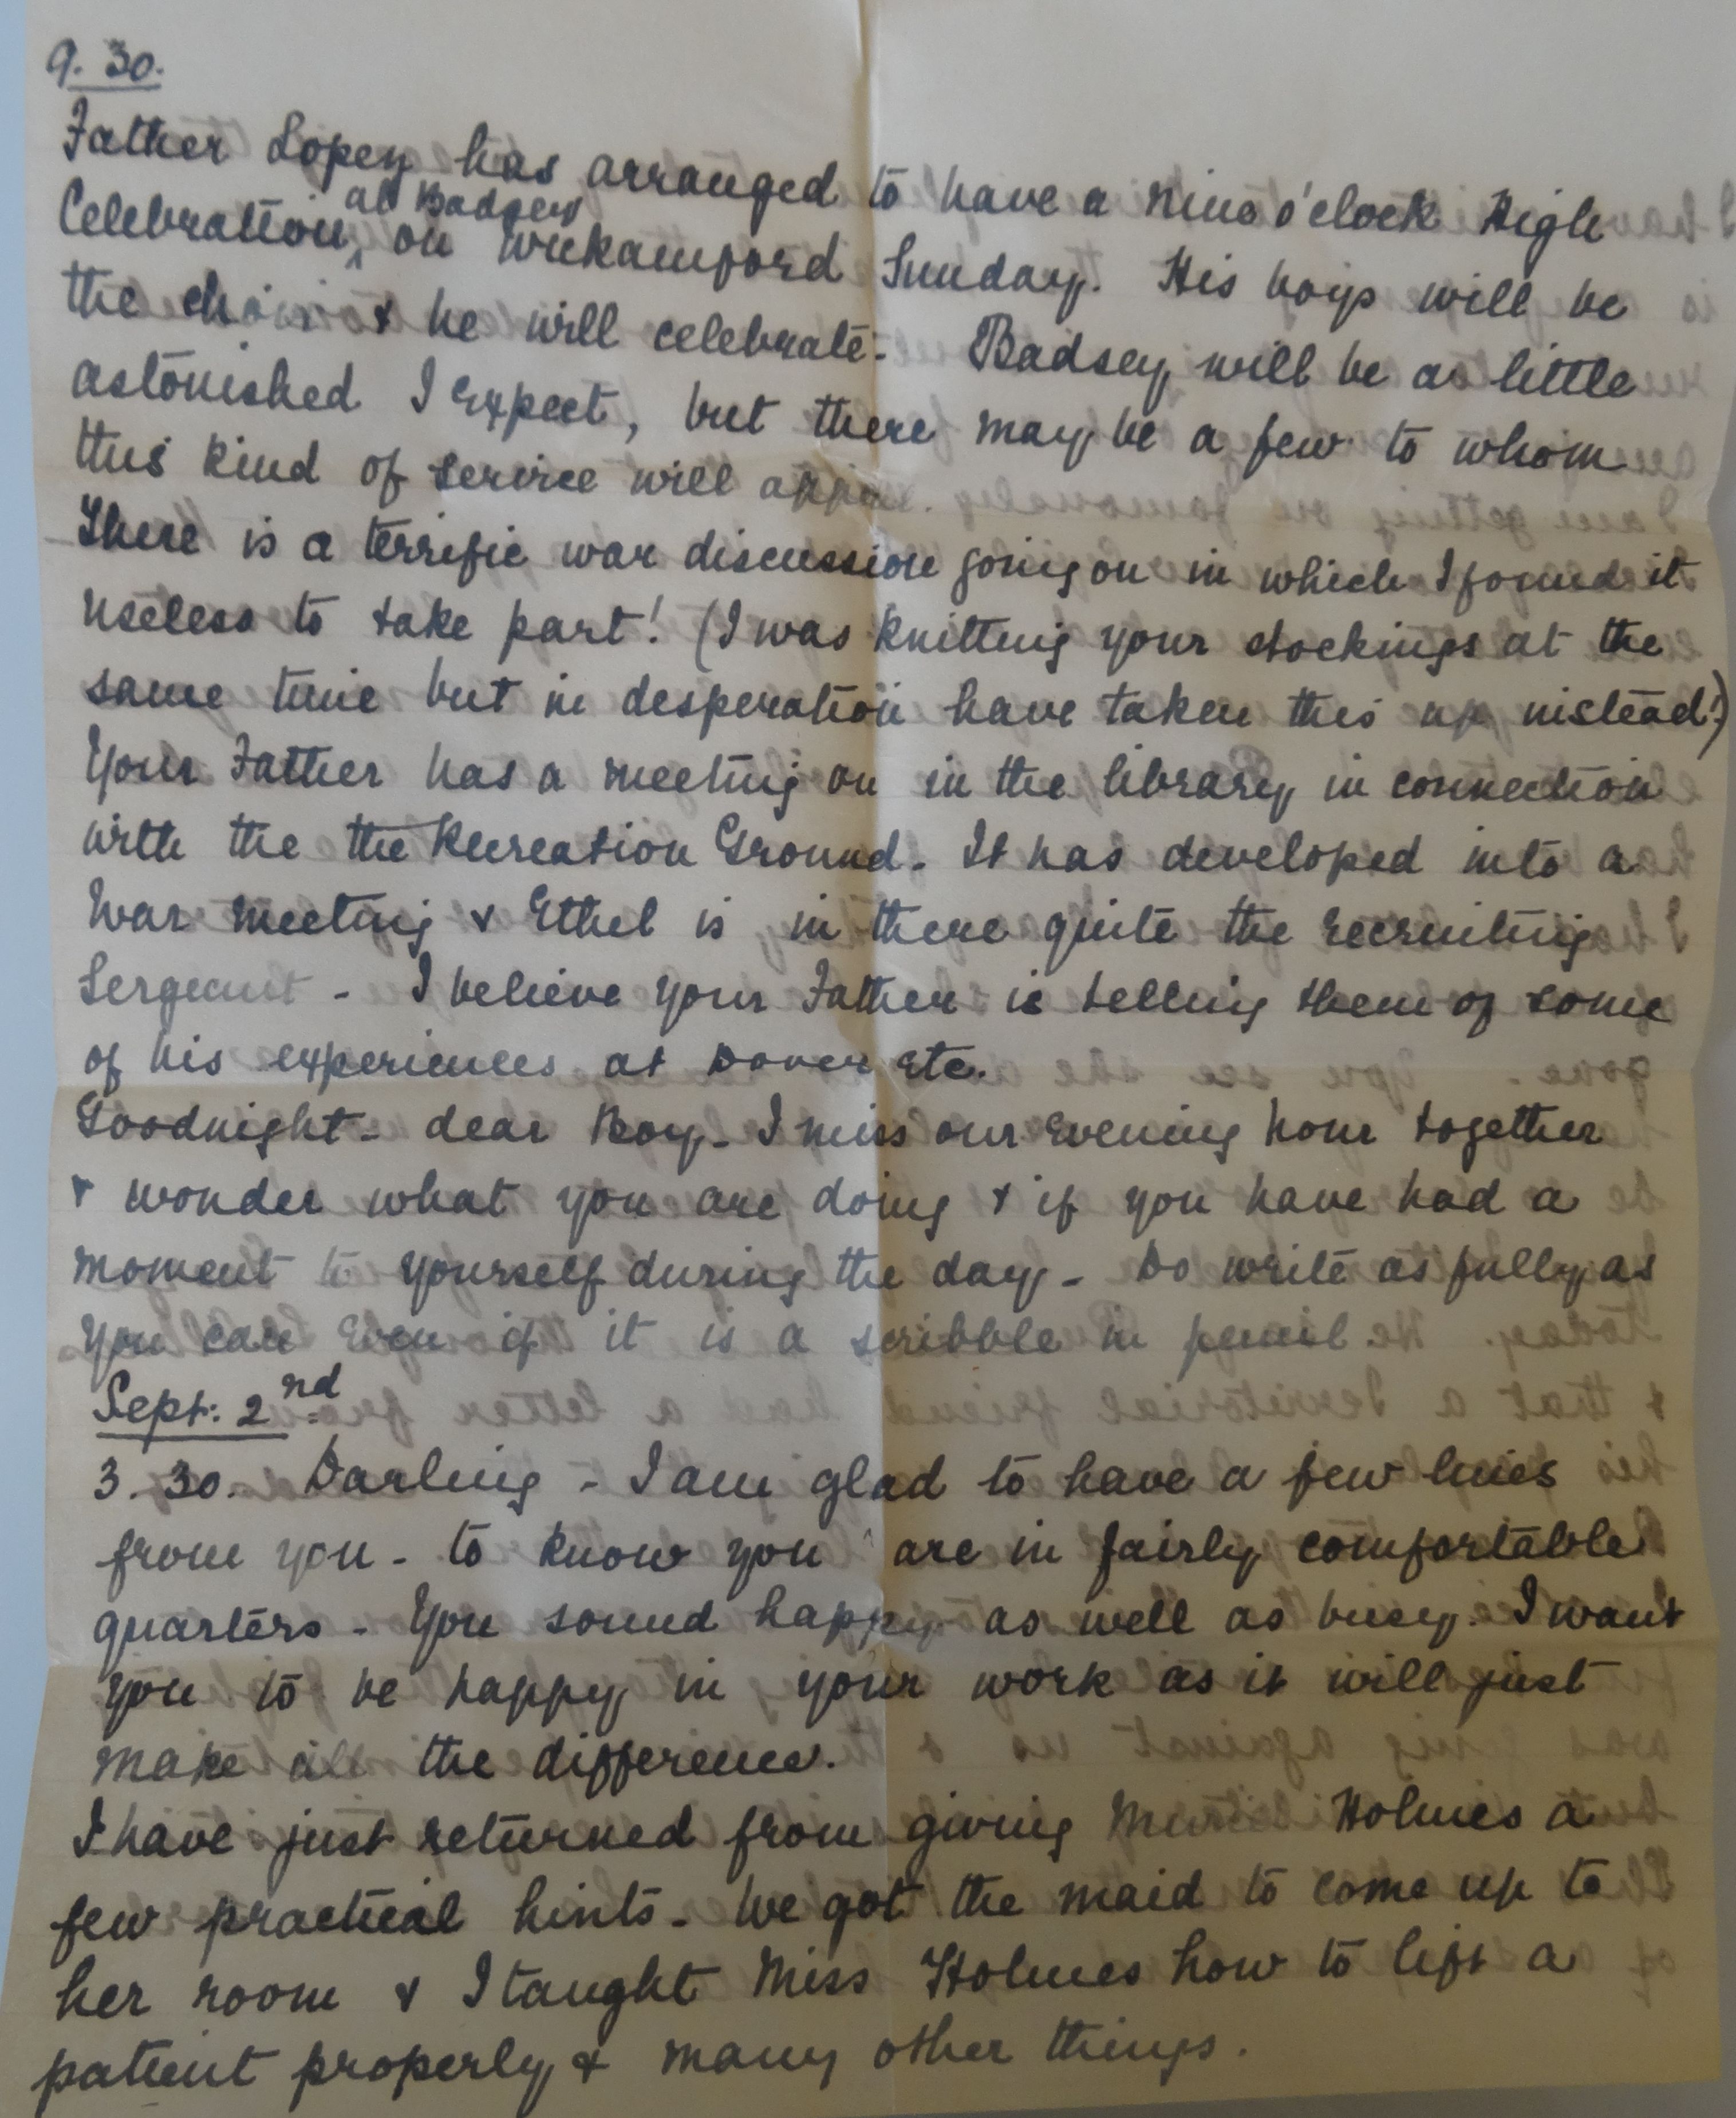 9. 30.
Father Lopez has arranged to have a nine o'clock High
at Badsey
Celebration, on Wickamford Sunday. His boys will be
the choir & he will celebrate. Badsey will be a little
astonished I expect, but there may be a few to whom
this kind of service will appeal.
There is a terrific war discussion going on in which I found it
useless to take part! (I was knitting your stockings at the
same time but in desperation have taken this up instead!)
Your Father has a meeting on in the library in connection
with the the Recreation Ground. It has developed into a
War meeting & Ethel is in there quite the recruiting
Sergeant - I believe your Father is telling them of some
of his experiences at Dover etc.
Goodnight - dear Boy - I miss our evening hour together
& wonder what you are doing & if you have had a
moment to yourself during the day - Do write as fully as
you can even if it is a scribble in pencil.
Sept: 2nd
3. 30. Darling - I am glad to have a few lines
from you - to know you are in fairly comfortable
quarters - You sound happy as well as busy. I want
you to be happy in your work as it will just
make all the difference.
I have just returned from giving Muriel Holmes a
few practical hints - We got the maid to come up to
her room & I taught Miss Holmes how to lift a
patient properly & many other things.